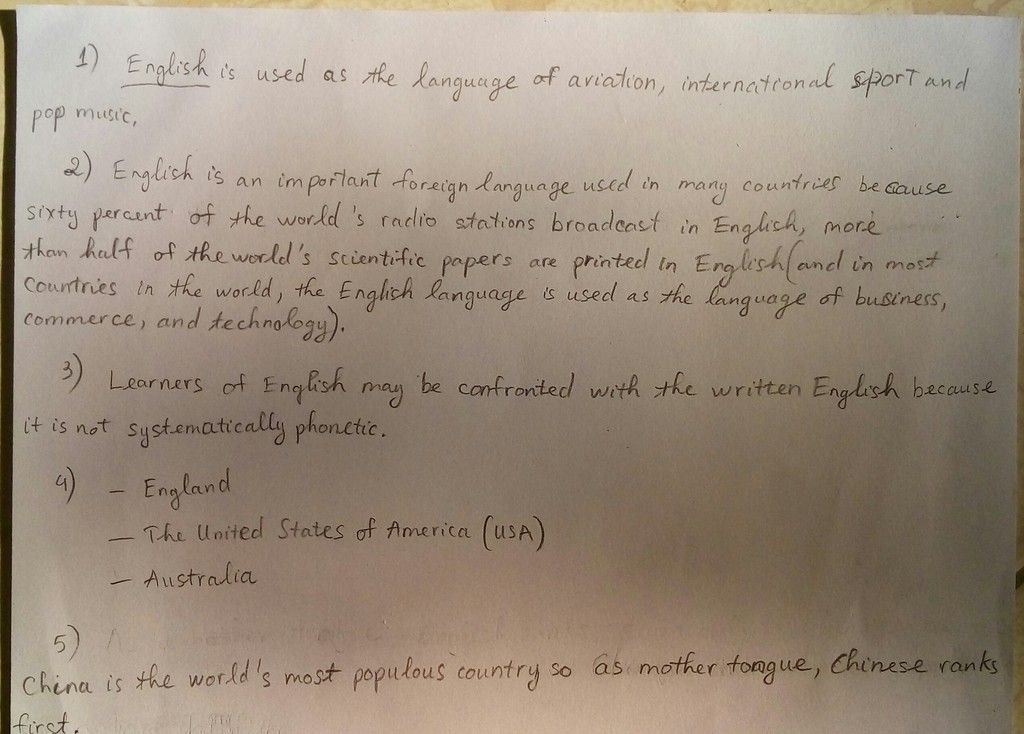 1) English is used as the language of aviation, international sport and
pop music.
2) English is an important foreign language used in many countries because
sixty percent of the world's radio stations broadcast in English, more
than half of the world's scientific papers are printed in English (and in most
countries in the world, the English language is used as the language of business,
commerce, and technology).
3) Learners of English may be confronted with the written English because
it is not systematically phonetic.
4) - England
- The United States of America (USA)
- Australia
5)
China is the world's most populous country so as mother tongue, Chinese ranks
first.